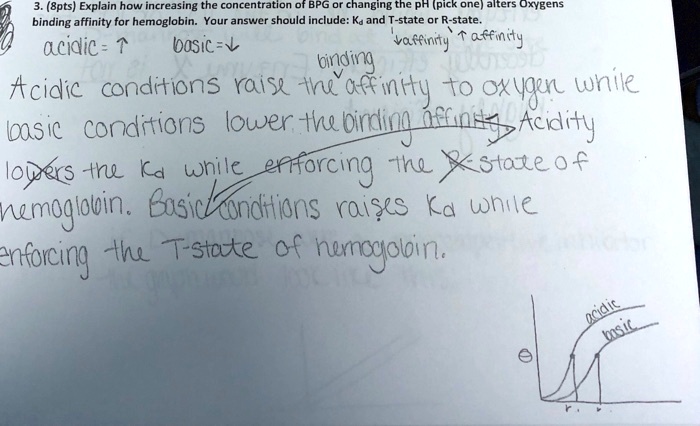 3. (8pts) Explain how increasing the concentration of BPG or changing the pH (pick one) alters Oxygens
binding affinity for hemoglobin. Your answer should include: Kd and T-state or R-state.
acidic = ↑ basic = ↓ ↓affinity ↑ affinity
binding
Acidic conditions raise the affinity to oxygen while
basic conditions lower the binding affinity. Acidity
lowers the Kd while enforcing the R-state of
hemoglobin. Basic conditions raises Kd while
enforcing the T-state of hemoglobin.
acidic
basic
θ